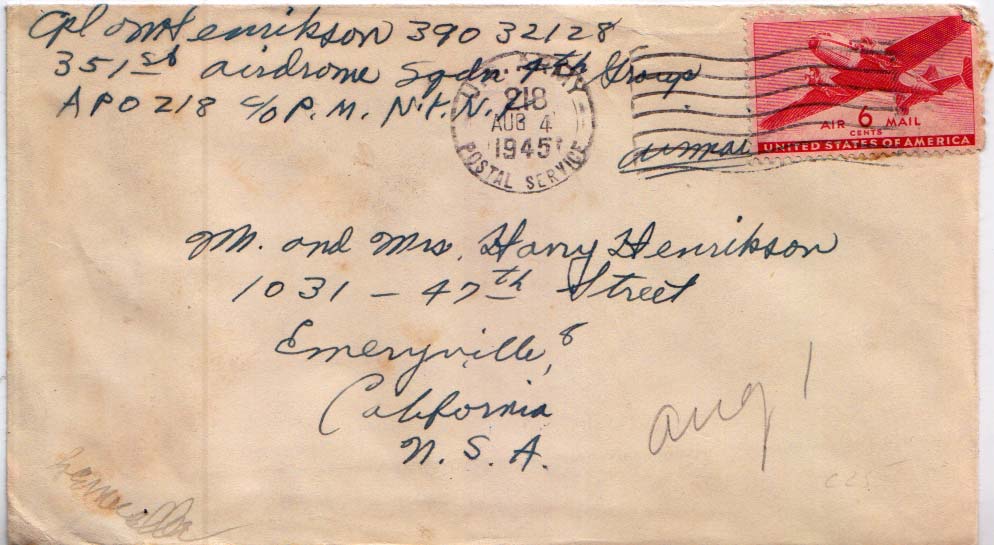 Cpl O M Henrikson 390 32128
351st Airdrome Sqdn 4th Group
APO 218 c/o P.M. N.Y. N.Y.
U.S. ARMY
218
AUG 4
1945
POSTAL SERVICE
airmail
AIR 6 MAIL
CENTS
UNITED STATES OF AMERICA
Mr. and Mrs. Harry Henrikson
1031 - 47th Street
Emeryville, 8
California
U. S. A.
Aug 1
C25